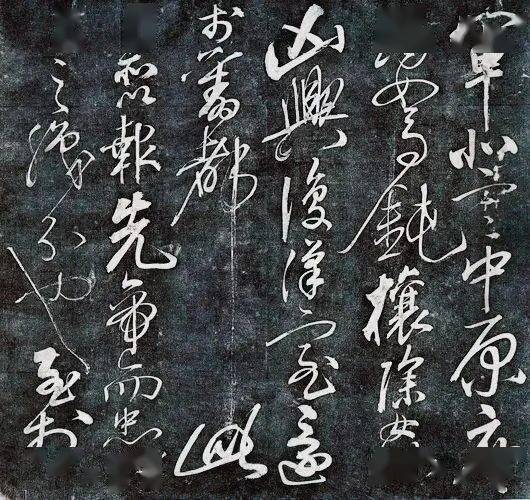 軍北定中原庶
竭駑鈍攘除姦
凶興復漢室還
於舊都此
所以報先帝而忠
之職分也至於